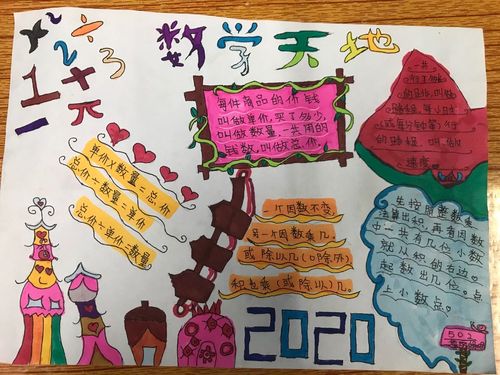 数学天地
x ÷
2 3
1 +
— π
每件商品的价钱
叫做单价,买了多少,
叫做数量,一共用的
钱数,叫做总价。
一共
行了多长
的路,叫做
路程,每小时
(或每分钟等)行
的路程,叫做
速度。
单价×数量=总价
总价÷数量=单价
总价÷单价=数量
一个因数不变,
另一个因数乘几
或除以几(0除外)
积也乘(或除以)几。
先按照整数乘
法算出积,再看因数
中一共有几位小数
就从积的右边
起数出几位。点
上小数点。
2020